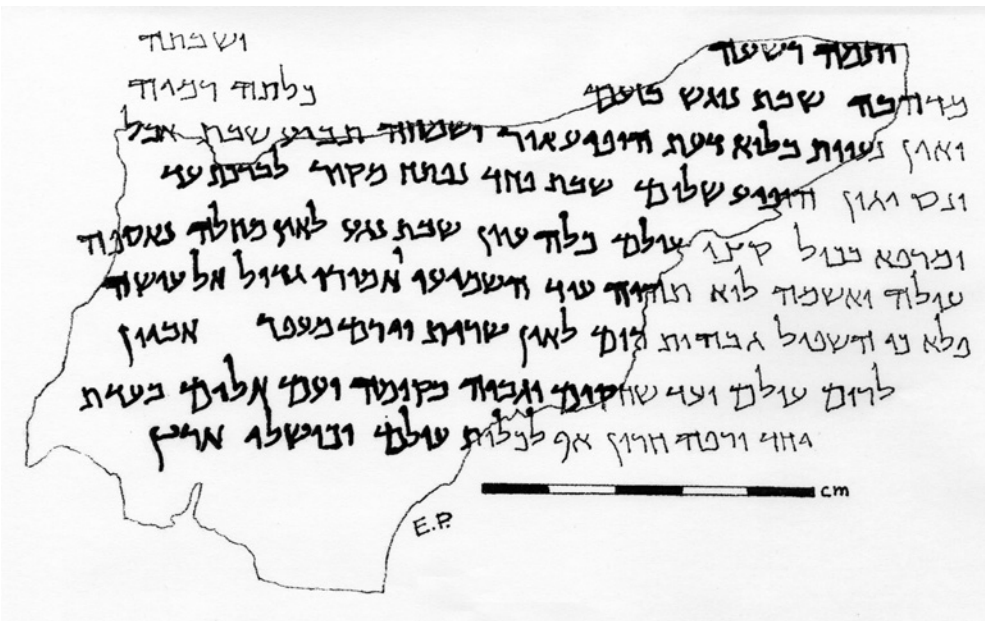 ותמה רשעה ושבתה
מדהבה שבת נוגש בזעם כלתה רמיה
ואין נעוות בלוא דעת הופיע אור ושמחה תביע שבת אבל
ונס יגון הופיע שלום שבת פחד נפתח מקור לברכת עד
ומרפא בכול קצי עולם כלה עוון שבת נגע לאין מחלה נאספה
עולה ואשמה לוא תהיה עוד השמיעו ואמורו גדול אל עושה
פלא כי השפיל גבהות רום לאין שרית וירם מעפר אביון
לרום עולם ועד שחקים יגביר בקומה ועם אלים בעדת
יחד ורפה חרון אף לכלות עולם וכושלי ארץ
cm
E.P.